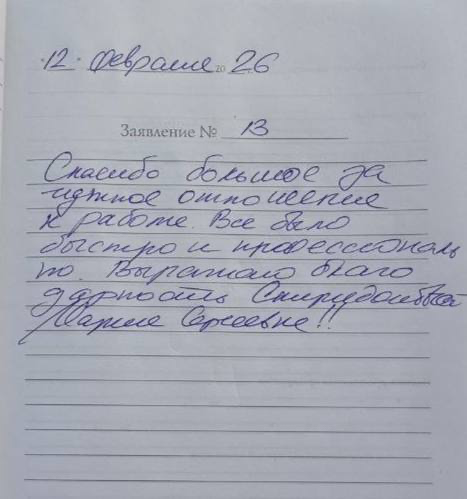 "12" февраля 2026
Заявление № 13
Спасибо большое за
нужное отношение
к работе. Все было
быстро и профессиональ
но. Выражаю благо
дарность
Марине Сергеевне!!